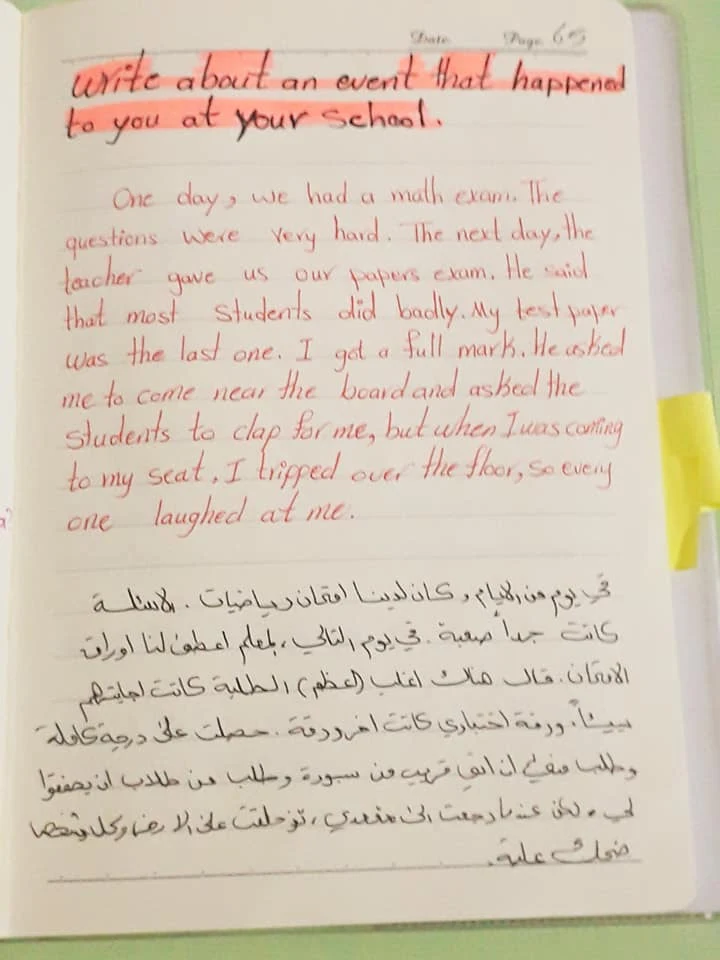 Date
Page 65
Write about an event that happened
to you at your school.
One day, we had a math exam. The
questions were very hard. The next day, the
teacher gave us our papers exam. He said
that most students did badly. My test paper
was the last one. I got a full mark. He asked
me to come near the board and asked the
students to clap for me, but when I was coming
to my seat, I tripped over the floor, so every
one laughed at me.
في يوم من الايام، كان لدينا امتحان رياضيات. الاسئلة
كانت جداً صعبة. في يوم التالي، لنا اوراق
الامتحان. قال هناك اغلب (اعظم) الطلبة كانت اجابتهم
ورقة اختباري كانت اخر ورقة. حصلت على درجة كاملة
وطلب ان قريب من سبورة وطلب من طلاب ان يصفقوا
لي رجعت الى مقعدي، على الارض وكل
ضحك علية.